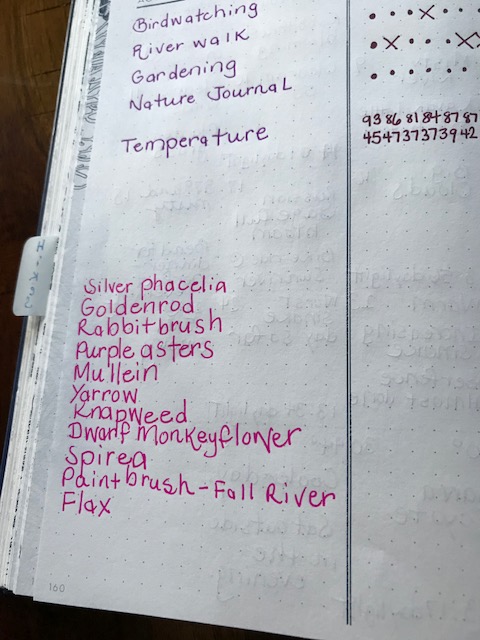 Birdwatching
River walk
Gardening
Nature Journal
Temperature
93 86 81 84 87 87
45 47 37 37 39 42
Silver phacelia
Goldenrod
Rabbitbrush
Purple asters
Mullein
Yarrow
Knapweed
Dwarf Monkeyflower
Spirea
Paintbrush - Fall River
Flax
160